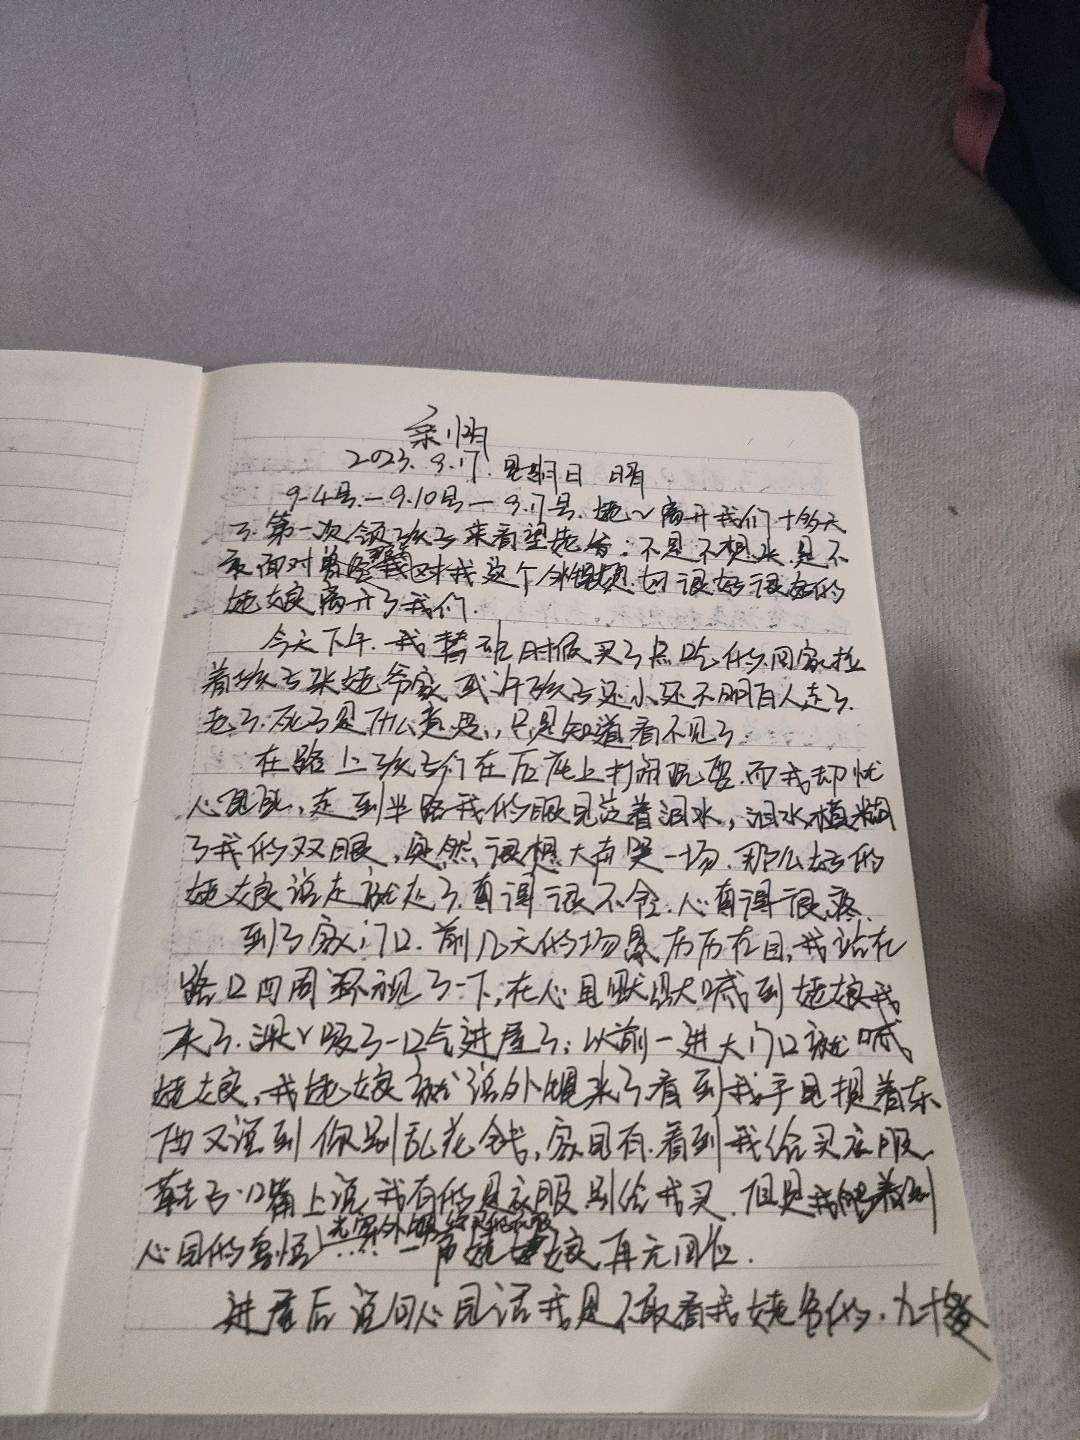 亲情
2023.9.17.星期日 晴
9.4号.一9.10号一9.17号.姥~离开我们十多天
了.第一次领孩子来看望姥爷:不是不想来.是不
面对曾经对我这个外甥媳妇很好很好的
姥娘离开了我们.
今天下午.我替班时候买了点吃的.回家拉
着孩子来姥爷家.或许孩子还小还不明白人走了.
老了.死了是什么意思.,只是知道看不见了.
在路上孩子们在后座上打闹玩耍.而我却忧
心.走到半路我的眼里泛着泪水,泪水模糊
了我的双眼,突然很想大声哭一场.那么好的
姥娘说走就走了.真得很不舍.心真得很疼.
到了家门口.前几天的场景历历在目,我站在
路口四周环视了一下,在心里默默喊到姥娘我
来了.深~吸了一口气进屋了;以前一进大门口就喊
姥娘,我姥娘就说外甥来了.看到我手里提着东
西又说到你别乱花钱,家里有.看到我给买衣服.
鞋子.口嘴上说我有的是衣服别给我买.但是我能看到
心里的喜悦 一声姥娘,再无回应.
进屋后说句心里话我是不敢看我姥爷的.九十